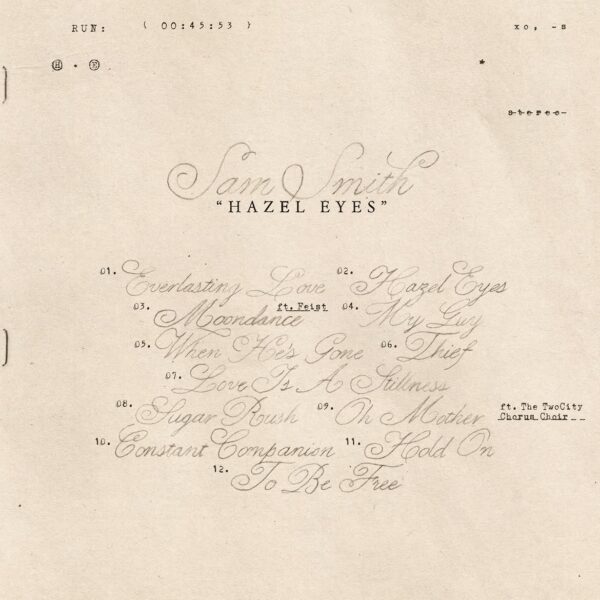 RUN: ( 00:45:53 ) xo, -s
H • E *
stereo
Sam Smith
“HAZEL EYES”
01. Everlasting Love 02. Hazel Eyes
03. Moondance ft. Feist 04. My Guy
05. When He's Gone 06. Thief
07. Love Is A Stillness
08. Sugar Rush 09. Oh Mother ft. The TwoCity Chorus Choir
10. Constant Companion 11. Hold On
12. To Be Free